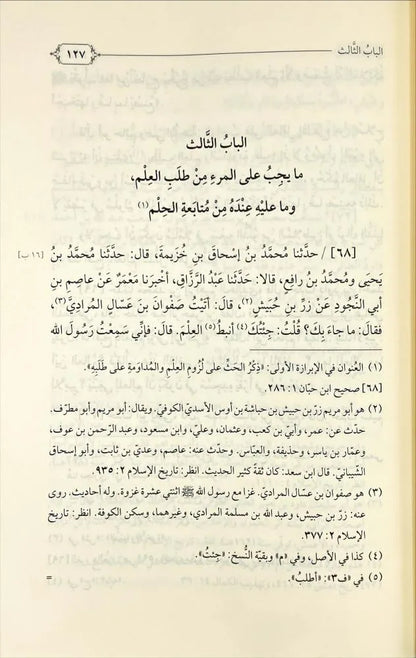 البابُ الثَّالث
١٢٧
البابُ الثَّالث
ما يجِبُ على المرءِ مِنْ طلَبِ العِلْم،
وما عليْهِ عِنْدَهُ مِنْ مُتابَعةِ الحِلْم (١)
[٦٨] / حدَّثنا مُحمَّد بنُ إسْحاقَ بنِ خُزيمةَ، قال: حدَّثَنا مُحمَّدُ بنُ [١٦ب]
يَحيَى ومُحمَّدُ بنُ رافِعٍ، قالا: حَدَّثَنا عَبدُ الرَّزَّاق، أخْبَرنا مَعْمَرٌ عَنْ عاصِمِ بنِ
أبي النَّجُودِ عَنْ زِرِّ بنِ حُبيشٍ (٢)، قال: أتيْتُ صَفْوانَ بنَ عَسَّال المُرادِيَّ (٣)،
فقالَ: ما جاءَ بِكَ؟ قُلْتُ: جِئْتُكَ (٤) أنبِطُ (٥) العِلْمَ. قالَ: فإنِّي سَمِعْتُ رَسُولَ الله
(١) العُنوان في الإبرازة الأولى: «ذِكْرُ الحَثِّ على لُزومِ العِلْمِ والمُداوَمةِ على طَلَبِه».
[٦٨] صحيح ابن حبّان ١: ٢٨٦.
(٢) هو أبو مريم زِرّ بن حبيش بن حباشة بن أوس الأسديّ الكوفيّ. ويقال: أبو مريم وأبو مطرّف.
حدّث عن: عمر، وأبيّ بن كعب، وعثمان، وعليّ، وابن مسعود، وعبد الرّحمن بن عوف،
وعمّار بن ياسر، وحذيفة، والعبّاس. وحدّث عنه: عاصم، وعديّ بن ثابت، وأبو إسحاق
الشّيبانيّ. قال ابن سعد: كان ثقةً كثير الحديث. انظر: تاريخ الإسلام ٢: ٩٣٥.
(٣) هو صفوان بن عسّال المراديّ. غزا مع رسول الله ﷺ اثنتي عشرة غزوة. وله أحاديث. روى
عنه: زِرّ بن حبيش، وعبد الله بن مسلمة المرادي، وغيرهما، وسكن الكوفة. انظر: تاريخ
الإسلام ٢: ٣٧٧.
(٤) كذا في الأصل، وفي «م» وبقيّة النُّسخ: «جِئتُ».
(٥) في «ف٣»: «أطلبُ».
=